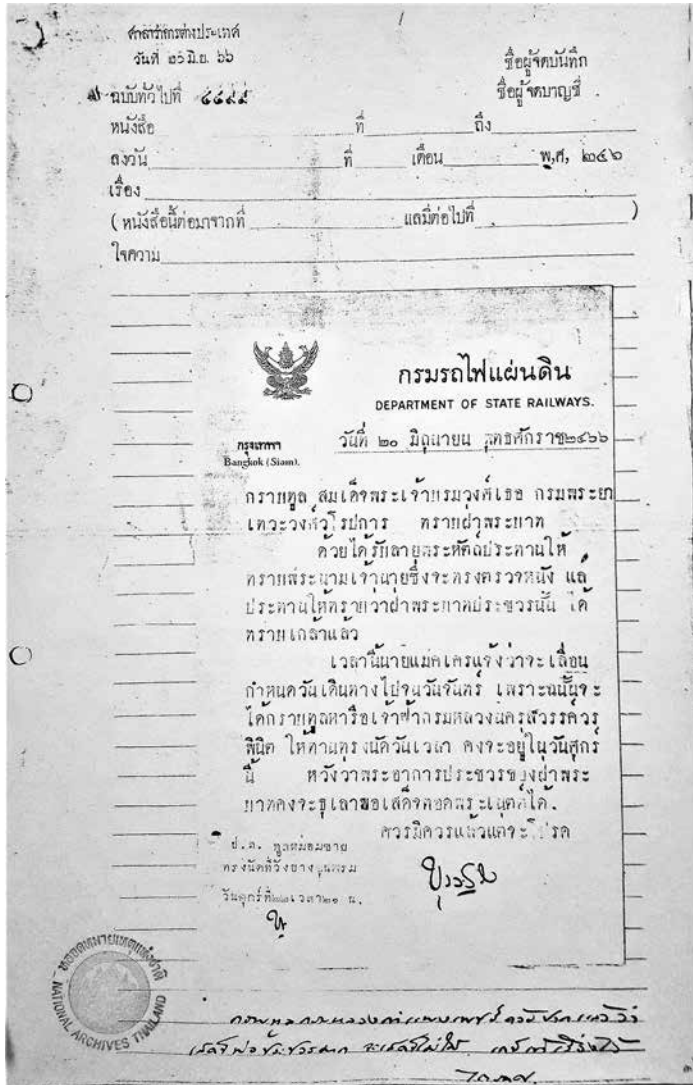 ศาลาว่าการต่างประเทศ
วันที่ ๒๑ มิ.ย. ๖๖
ชื่อผู้จดบันทึก
ฉบับทั่วไปที่ ๔๔๙๙
ชื่อผู้จดบาญชี
หนังสือ ที่ ถึง
ลงวัน ที่ เดือน พ,ศ, ๒๔๖
เรื่อง
( หนังสือนี้ต่อมาจากที่ แลมีต่อไปที่ )
ใจความ
กรมรถไฟแผ่นดิน
DEPARTMENT OF STATE RAILWAYS.
กรุงเทพฯ
วันที่ ๒๐ มิถุนายน พุทธศักราช๒๔๖๖
Bangkok (Siam).
กราบทูล สมเด็จพระเจ้าบรมวงศ์เธอ กรมพระยา
เทวะวงศ์วโรปการ ทราบฝ่าพระบาท
ด้วยได้รับลายพระหัตถ์ประทานให้
ทราบพระนามเจ้านายซึ่งจะทรงตรวจหนัง แล
ประทานให้ทราบว่าฝ่าพระบาทประชวรนั้น ได้
ทราบเกล้าแล้ว
เวลานี้นายแมคเครแจ้งว่าจะเลื่อน
กำหนดวันเดินทางไปจนวันจันทร์ เพราะฉนั้นจะ
ได้กราบทูลหารือเจ้าฟ้ากรมหลวงนครสวรรค์วร
พินิต ให้ท่านทรงนัดวันเวลา คงจะอยู่ในวันศุกร์
นี้ หวังว่าพระอาการประชวรของฝ่าพระ
บาทคงจะทุเลาพอเสด็จทอดพระเนตต์ได้.
ควรมิควรแล้วแต่จะโปรด
ป.ล. ทูลหม่อมชาย
ทรงนัดที่วังบางขุนพรหม
วันศุกร์ที่๒๒เวลา๒๑ น.
หอจดหมายเหตุแห่งชาติ
NATIONAL ARCHIVES THAILAND